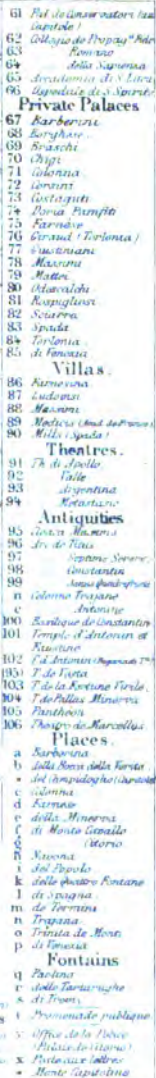 61 Pal. de Conservatori
Capitole
62 Collegio de Propag.
63 Romano
64 della Sapienza
65 Accademia di S. Luca
66 Ospedale di S. Spirito
Private Palaces
67 Barberini
68 Borghese
69 Braschi
70 Chigi
71 Colonna
72 Corsini
73 Costaguti
74 Doria Pamfili
75 Farnèse
76 Giraud (Torlonia)
77 Giustiniani
78 Massimi
79 Mattei
80 Odescalchi
81 Rospigliosi
82 Sciarra
83 Spada
84 Torlonia
85 di Venezia
Villas.
86 Farnesina
87 Ludovisi
88 Massimi
89 Medicis (Acad. de France)
90 Mills (Spada)
Theatres.
91 Th. di Apollo
92 Valle
93 Argentina
94 Metastasio
Antiquities
95 Cloaca Maxima
96 Arc de Titus
97 Septime Severe
98 Constantin
99 Janus Quadrifrons
n Colonne Trajane
e Antonine
100 Basilique de Constantin
101 Temple d'Antonin et
Faustine
102 T. d'Antonin
(95) T. de Vesta
103 T. de la Fortune Virile
104 T. de Pallas Minerva
105 Pantheon
106 Theatre de Marcellus
Places.
a Barberina
b della Bocca della Verità
* del Campidoglio
c Colonna
d Farnese
e della Minerva
f di Monte Cavallo
g Citorio
h Navona
i del Popolo
k delle Quattro Fontane
l di Spagna
m de Termini
n Trajana
o Trinita de Monti
p di Venezia
Fontains
q Paolina
r delle Tartarughe
s di Trevi
t Promenade publique
v Office de la Police
(Palais de Citorio)
x Poste aux lettres
* Monte Capitolino